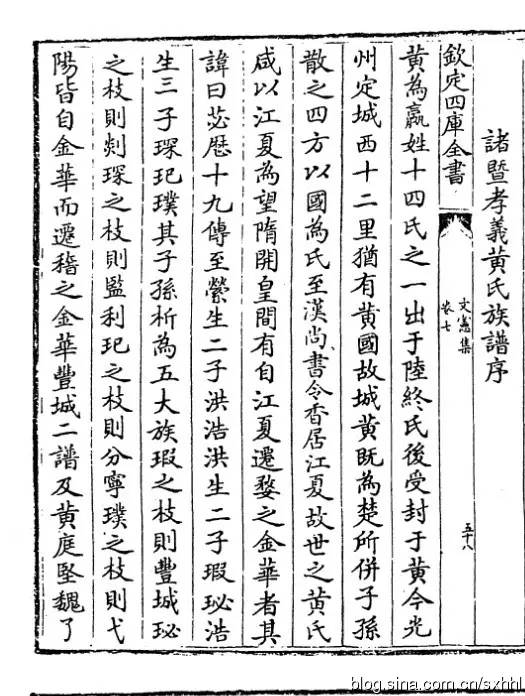 諸暨孝義黄氏族譜序
欽定四庫全書
文憲集
卷七
五十八
黄為嬴姓十四氏之一出于陸終氏後受封于黄今光
州定城西十二里猶有黄國故城黄既為楚所併子孫
散之四方以國為氏至漢尚書令香居江夏故世之黄氏
咸以江夏為望隋開皇間有自江夏遷婺之金華者其
諱曰苾厯十九傳至縈生二子洪浩洪生二子瑕珌浩
生三子琛玘璞其子孫析為五大族瑕之枝則豐城珌
之枝則剡琛之枝則監利玘之枝則分寧璞之枝則弋
陽皆自金華而遷稽之金華豐城二譜及黄庭堅魏了
blog.sina.com.cn/sxhhl